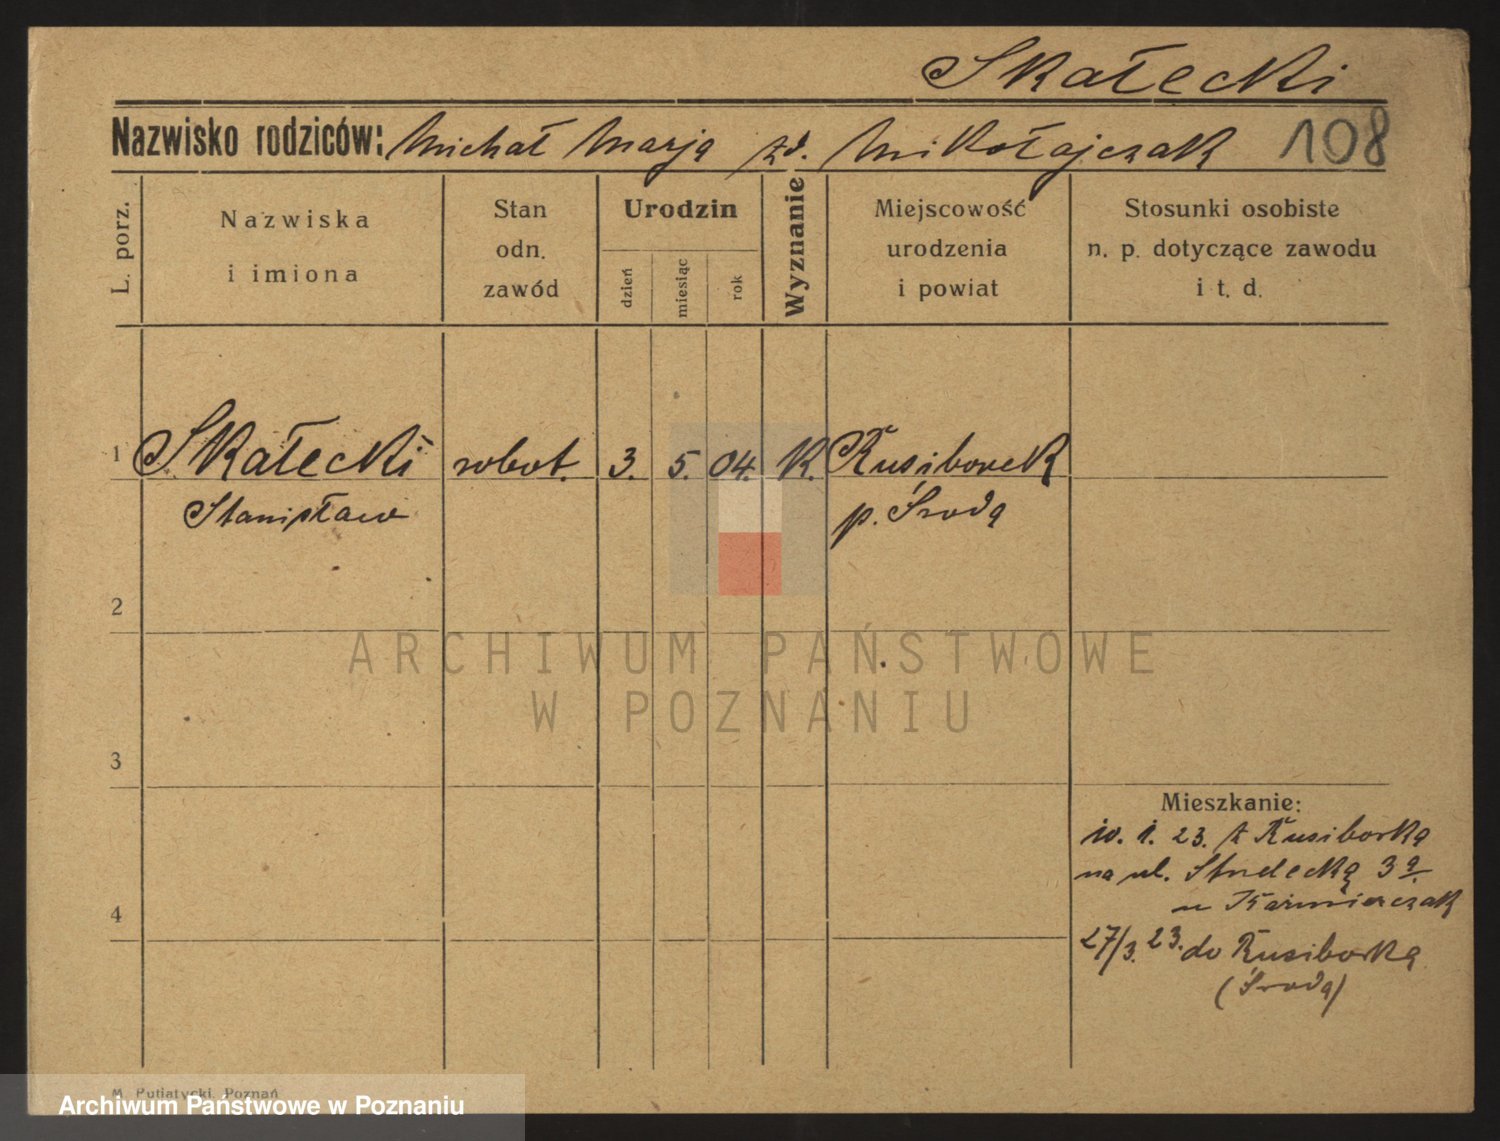 Skałecki
Nazwisko rodziców: Michał Marja zd. Mikołajczak 108
L. porz.
Nazwiska
i imiona
Stan
odn.
zawód
Urodzin
dzień
miesiąc
rok
Wyznanie
Miejscowość
urodzenia
i powiat
Stosunki osobiste
n. p. dotyczące zawodu
i t. d.
1 Skałecki robot. 3. 5. 04. K. Rusiborek
Stanisław p. Środa
2
ARCHIWUM PAŃSTWOWE
W POZNANIU
3
Mieszkanie:
10. 1. 23. z Rusiborka
na ul. 3a
u Kaźmierczak
4
27/3. 23. do Rusiborka
(Środa)
M. Putiatycki, Poznań
Archiwum Państwowe w Poznaniu